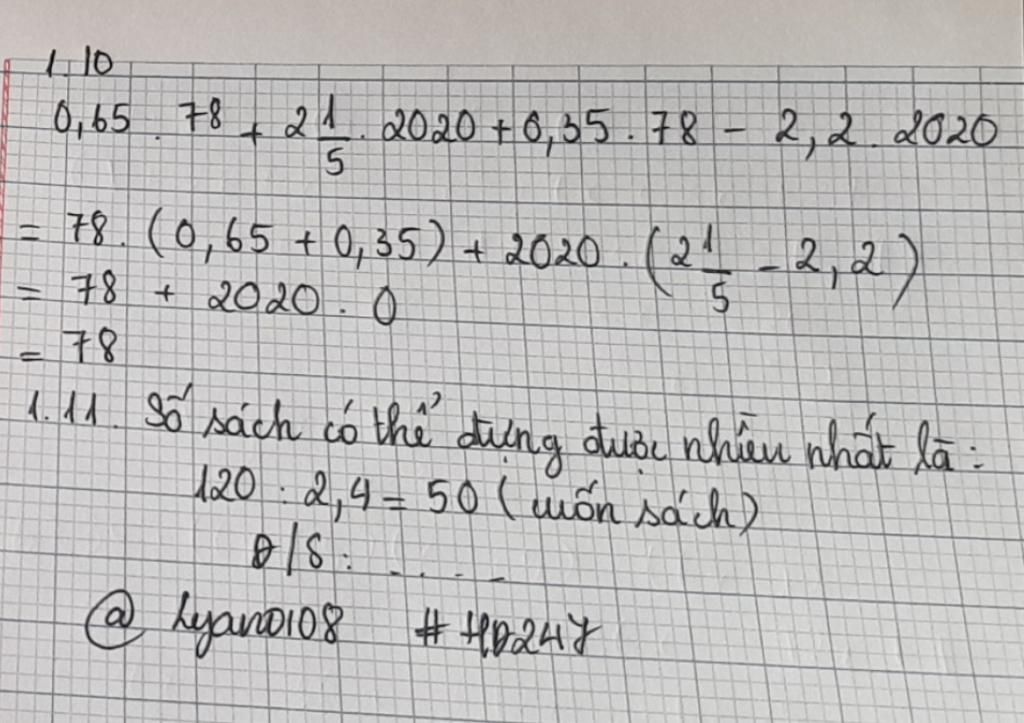 1.10
0,65 . 78 + 2 1/5 . 2020 + 0,35 . 78 - 2,2 . 2020
= 78. (0,65 + 0,35) + 2020 . (2 1/5 - 2,2)
= 78 + 2020 . 0
= 78
1.11. Số sách có thể đựng được nhiều nhất là :
120 : 2,4 = 50 (cuốn sách)
Đ/S : . . . .
@ Lyano108 # HD247